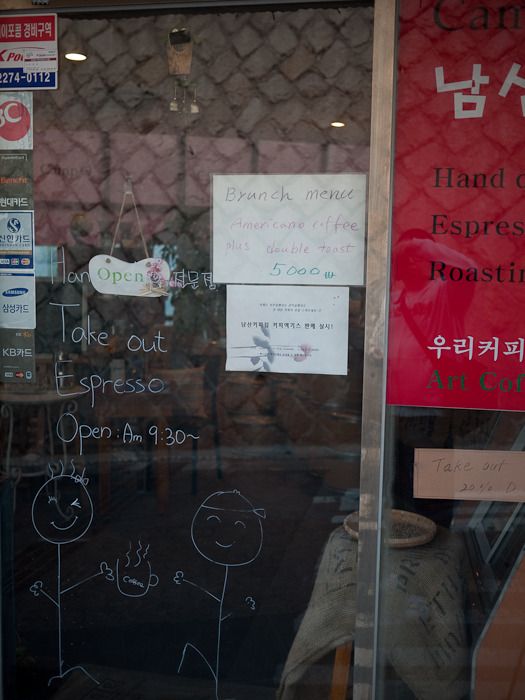 이포콩 경비구역
2274-0112
BC
Benefit
현대카드
신한카드
SAMSUNG
삼성카드
KB카드
Open
전문점
Take out
Espresso
Open : Am 9:30~
Coffee
Brunch menu
Americano coffee
plus double toast
5000
남산커피집 커피엑기스 판매 실시!
Cam
남산
Hand d
Espres
Roastin
우리커피
Art Cof
Take out
20%